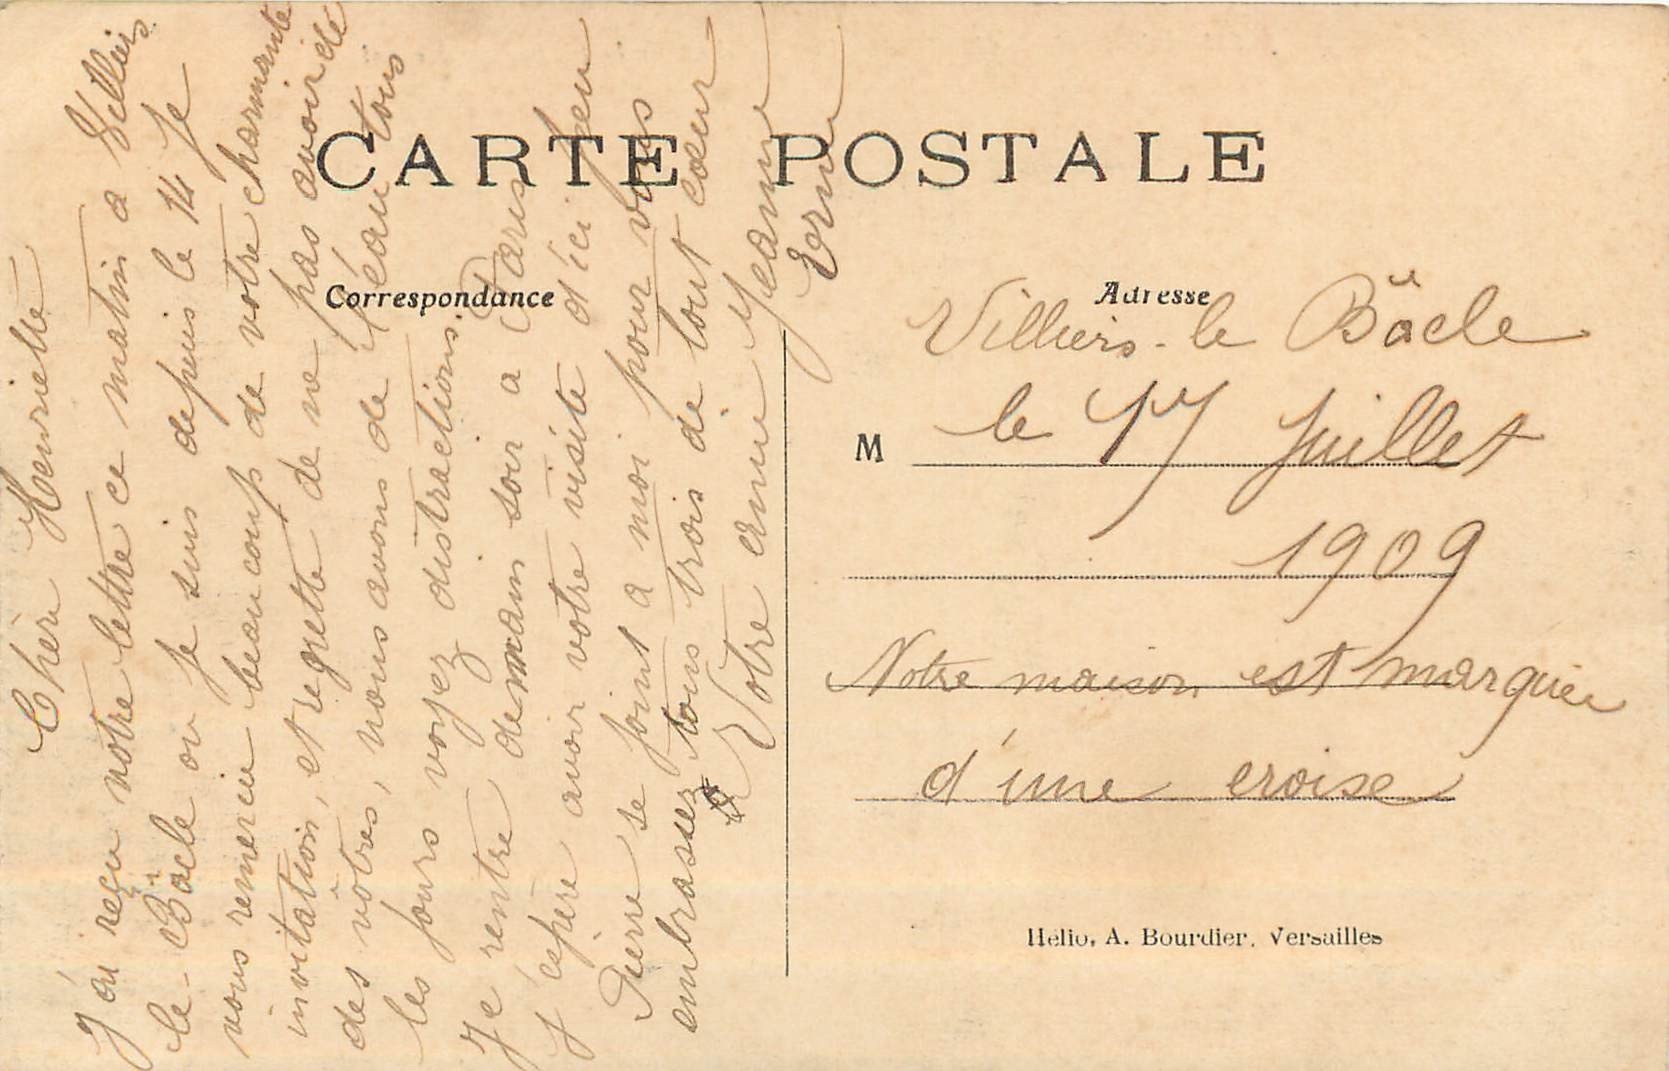 CARTE POSTALE
Correspondance
Chère Henriette
J'ai reçu votre lettre ce matin a Villiers
le-Bâcle ou je suis depuis le 14 Je
vous remercie beaucoup de votre charmante
invitation, et regrette de ne pas avoir été
des vôtres, nous avons de l'eau tous
les jours voyez distractions.
Je rentre demain soir a Paris
J'éspère avoir votre visite d'ici peu
Pierre se joint a moi pour vous
embrasser tous trois de tout cœur
Votre amie Jeanne
Adresse
Villiers-le Bâcle
M le 17 Juillet
1909
Notre maison est marquée
d'une croise
Helio, A. Bourdier, Versailles